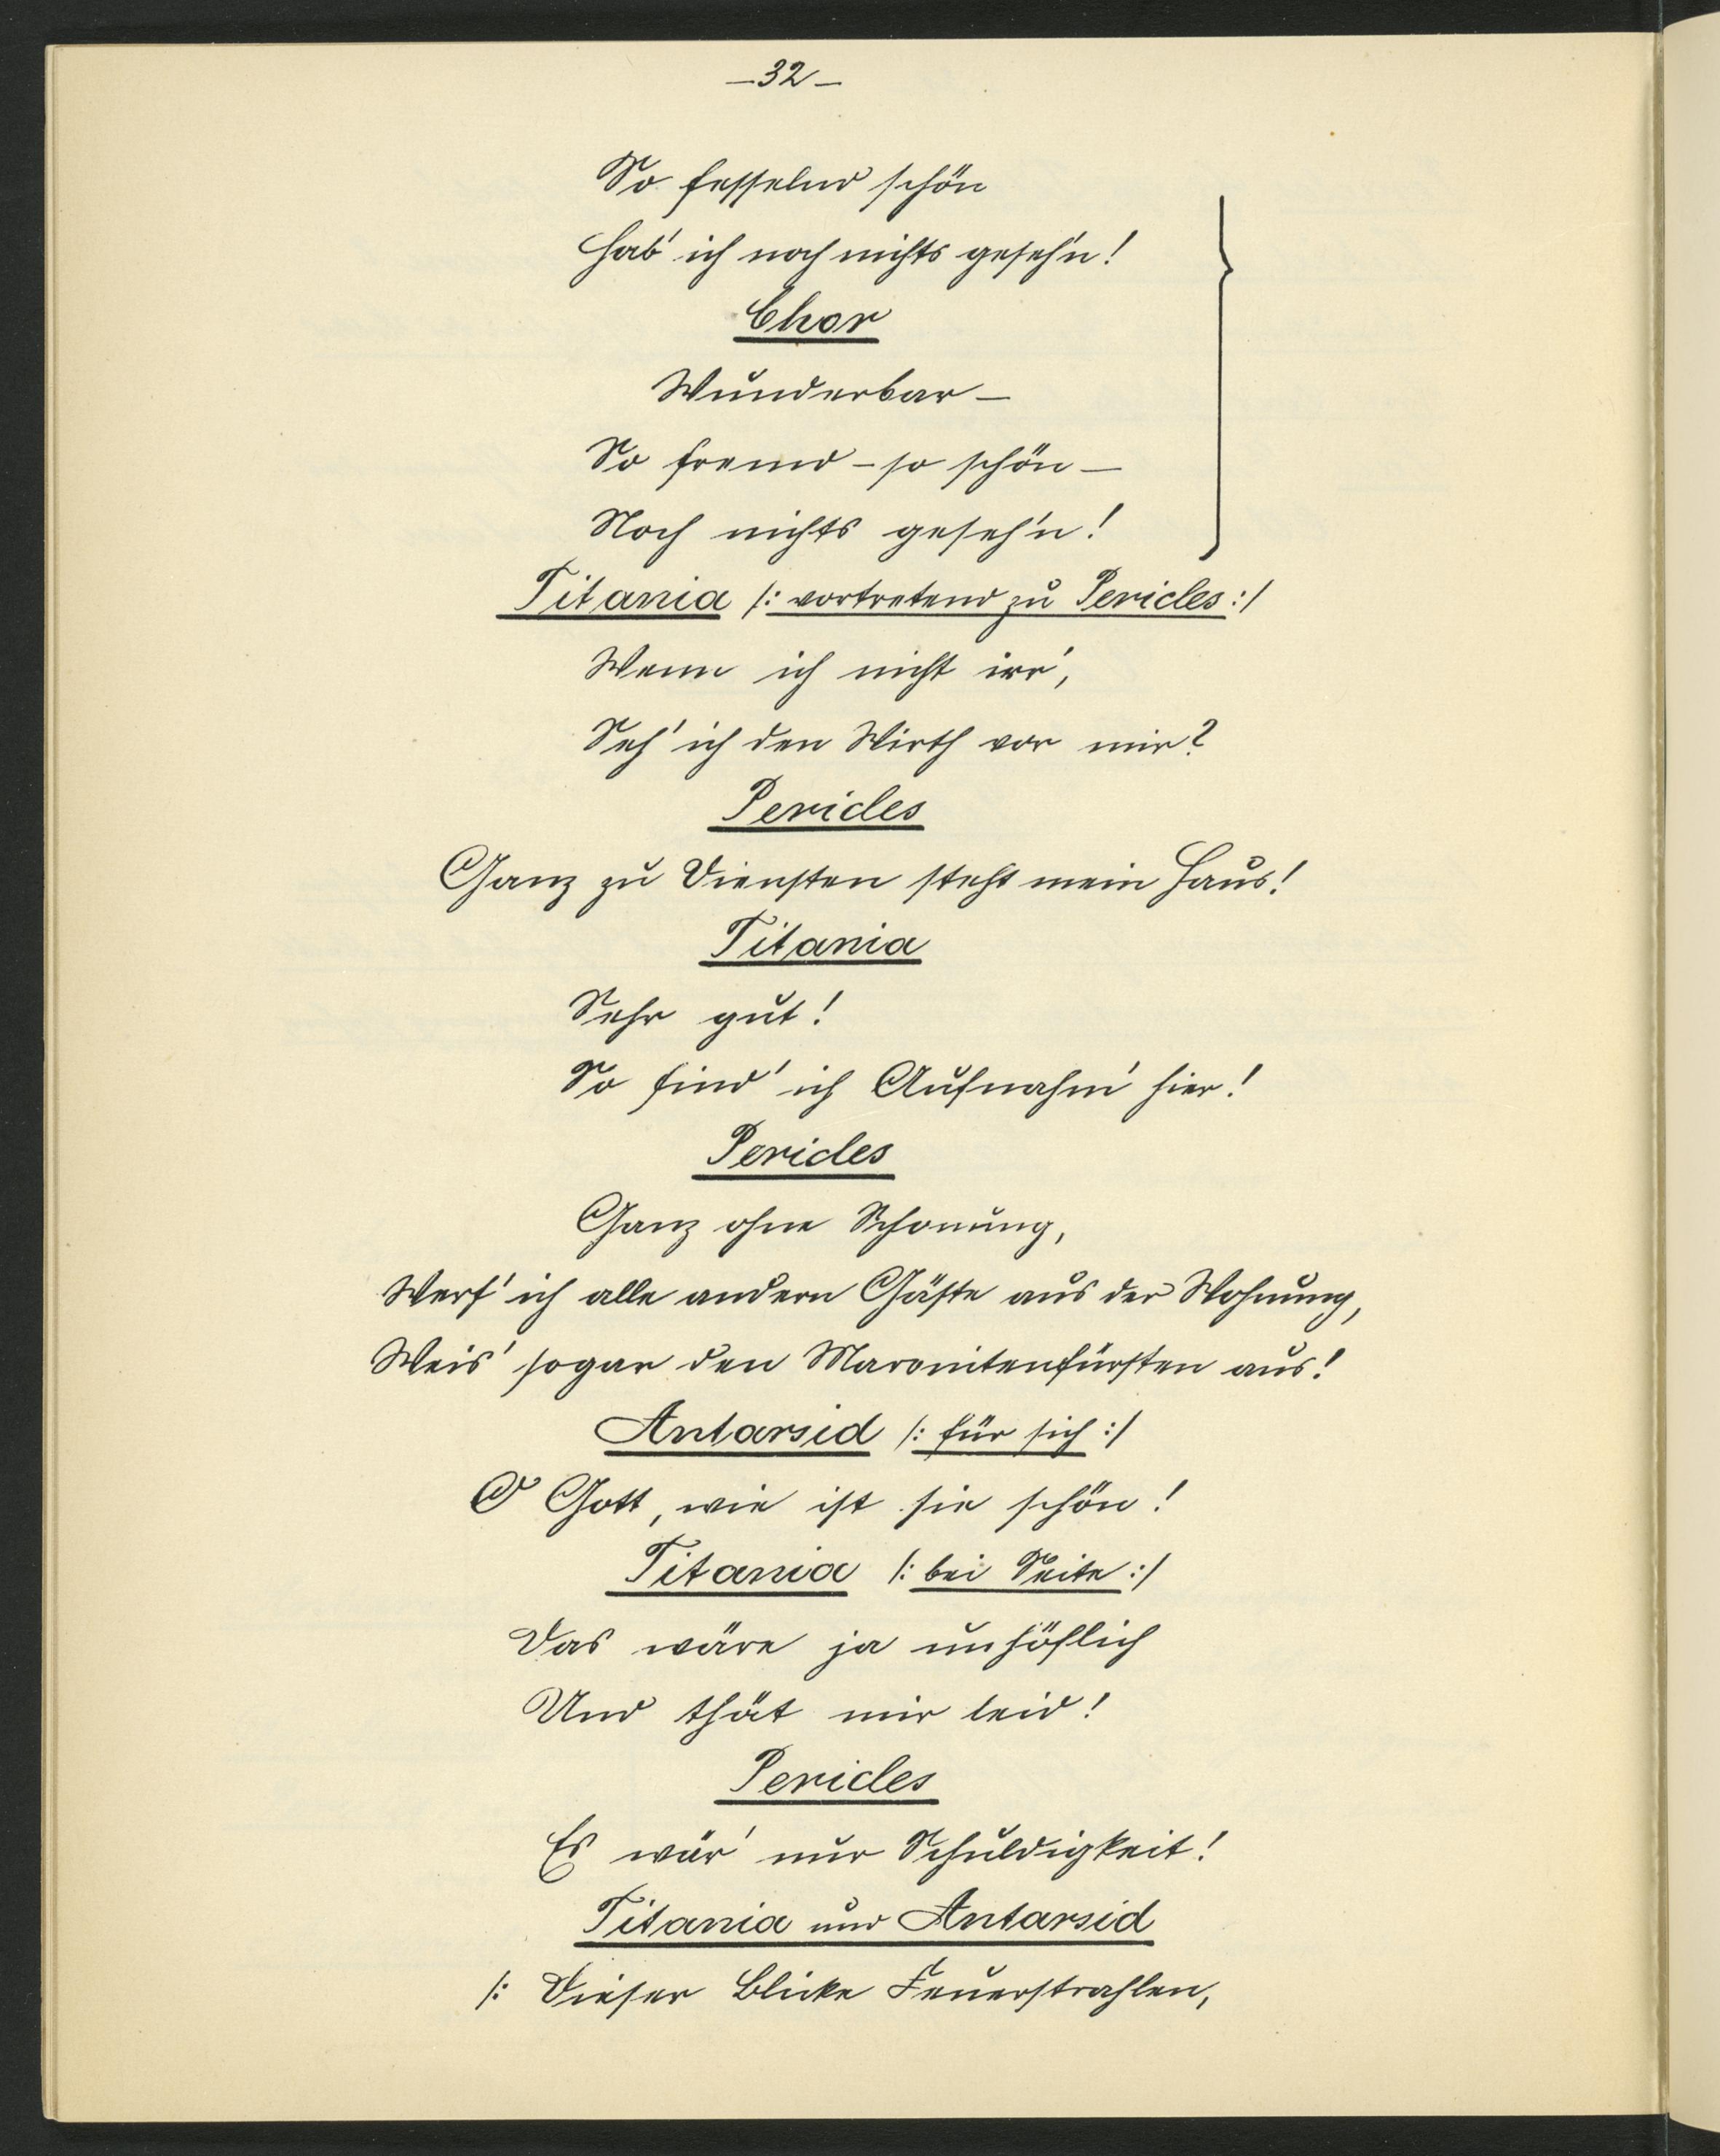 -32-
So fesselnd schön
Hab' ich noch nichts geseh'n!
Chor
Wunderbar -
So fremd - so schön -
Noch nichts geseh'n!
Titania /: vortretend zu Pericles :/
Wenn ich nicht irr',
Seh' ich den Wirth vor mir?
Pericles
Ganz zu Diensten steht mein Haus!
Titania
Sehr gut!
So find' ich Aufnahm' hier!
Pericles
Ganz ohne Schonung,
Werf' ich alle andern Gäste aus der Wohnung,
Weis' sogar den Maronitenfürsten aus!
Antarsid /: für sich :/
O Gott, wie ist sie schön!
Titania /: bei Seite :/
Das wäre ja unhöflich
Und thät mir leid!
Pericles
Es wär' nur Schuldigkeit!
Titania und Antarsid
/: Dieser Blicke Feuerstrahlen,